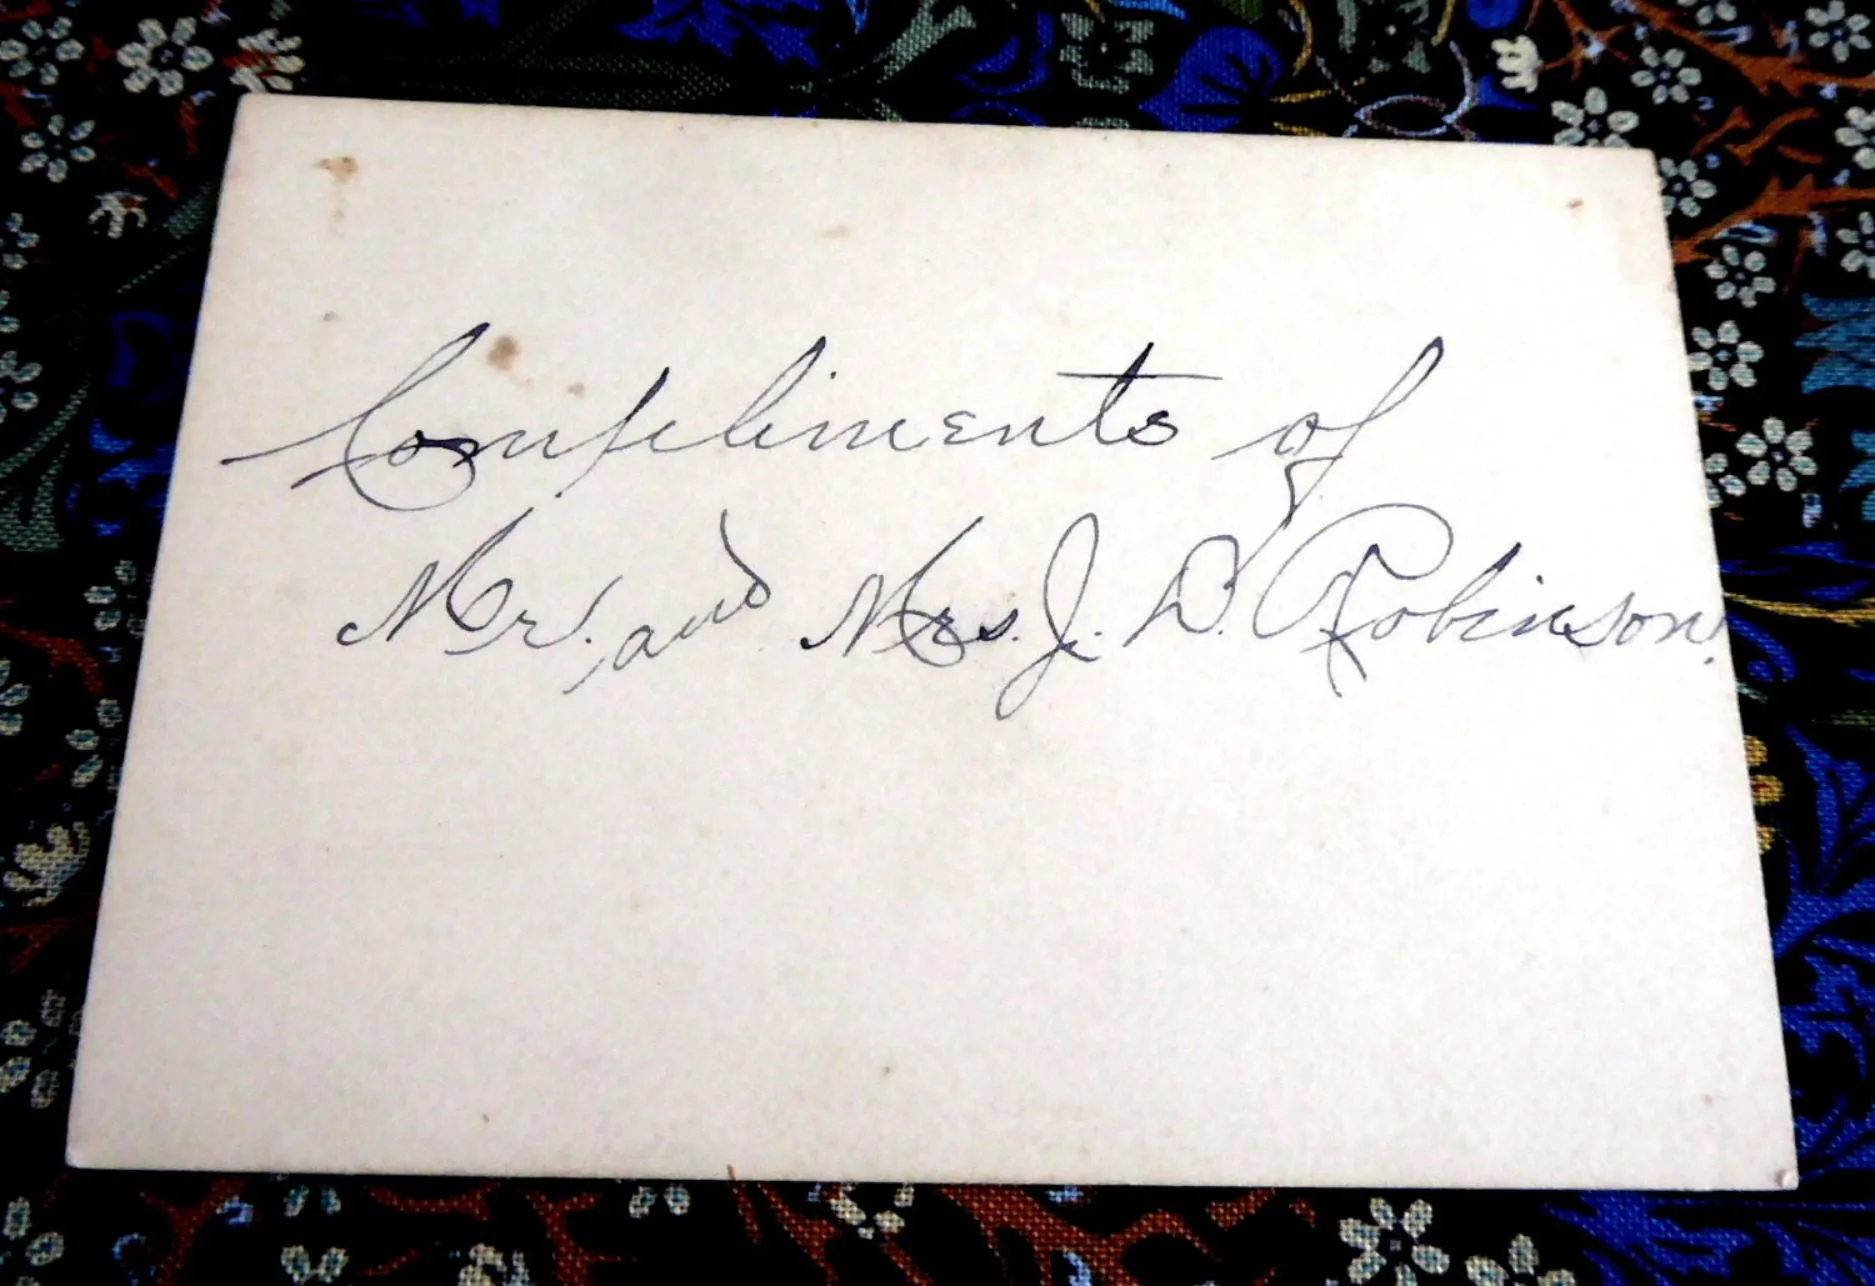 Compliments of
Mr. and Mrs. J. D. Robinson.